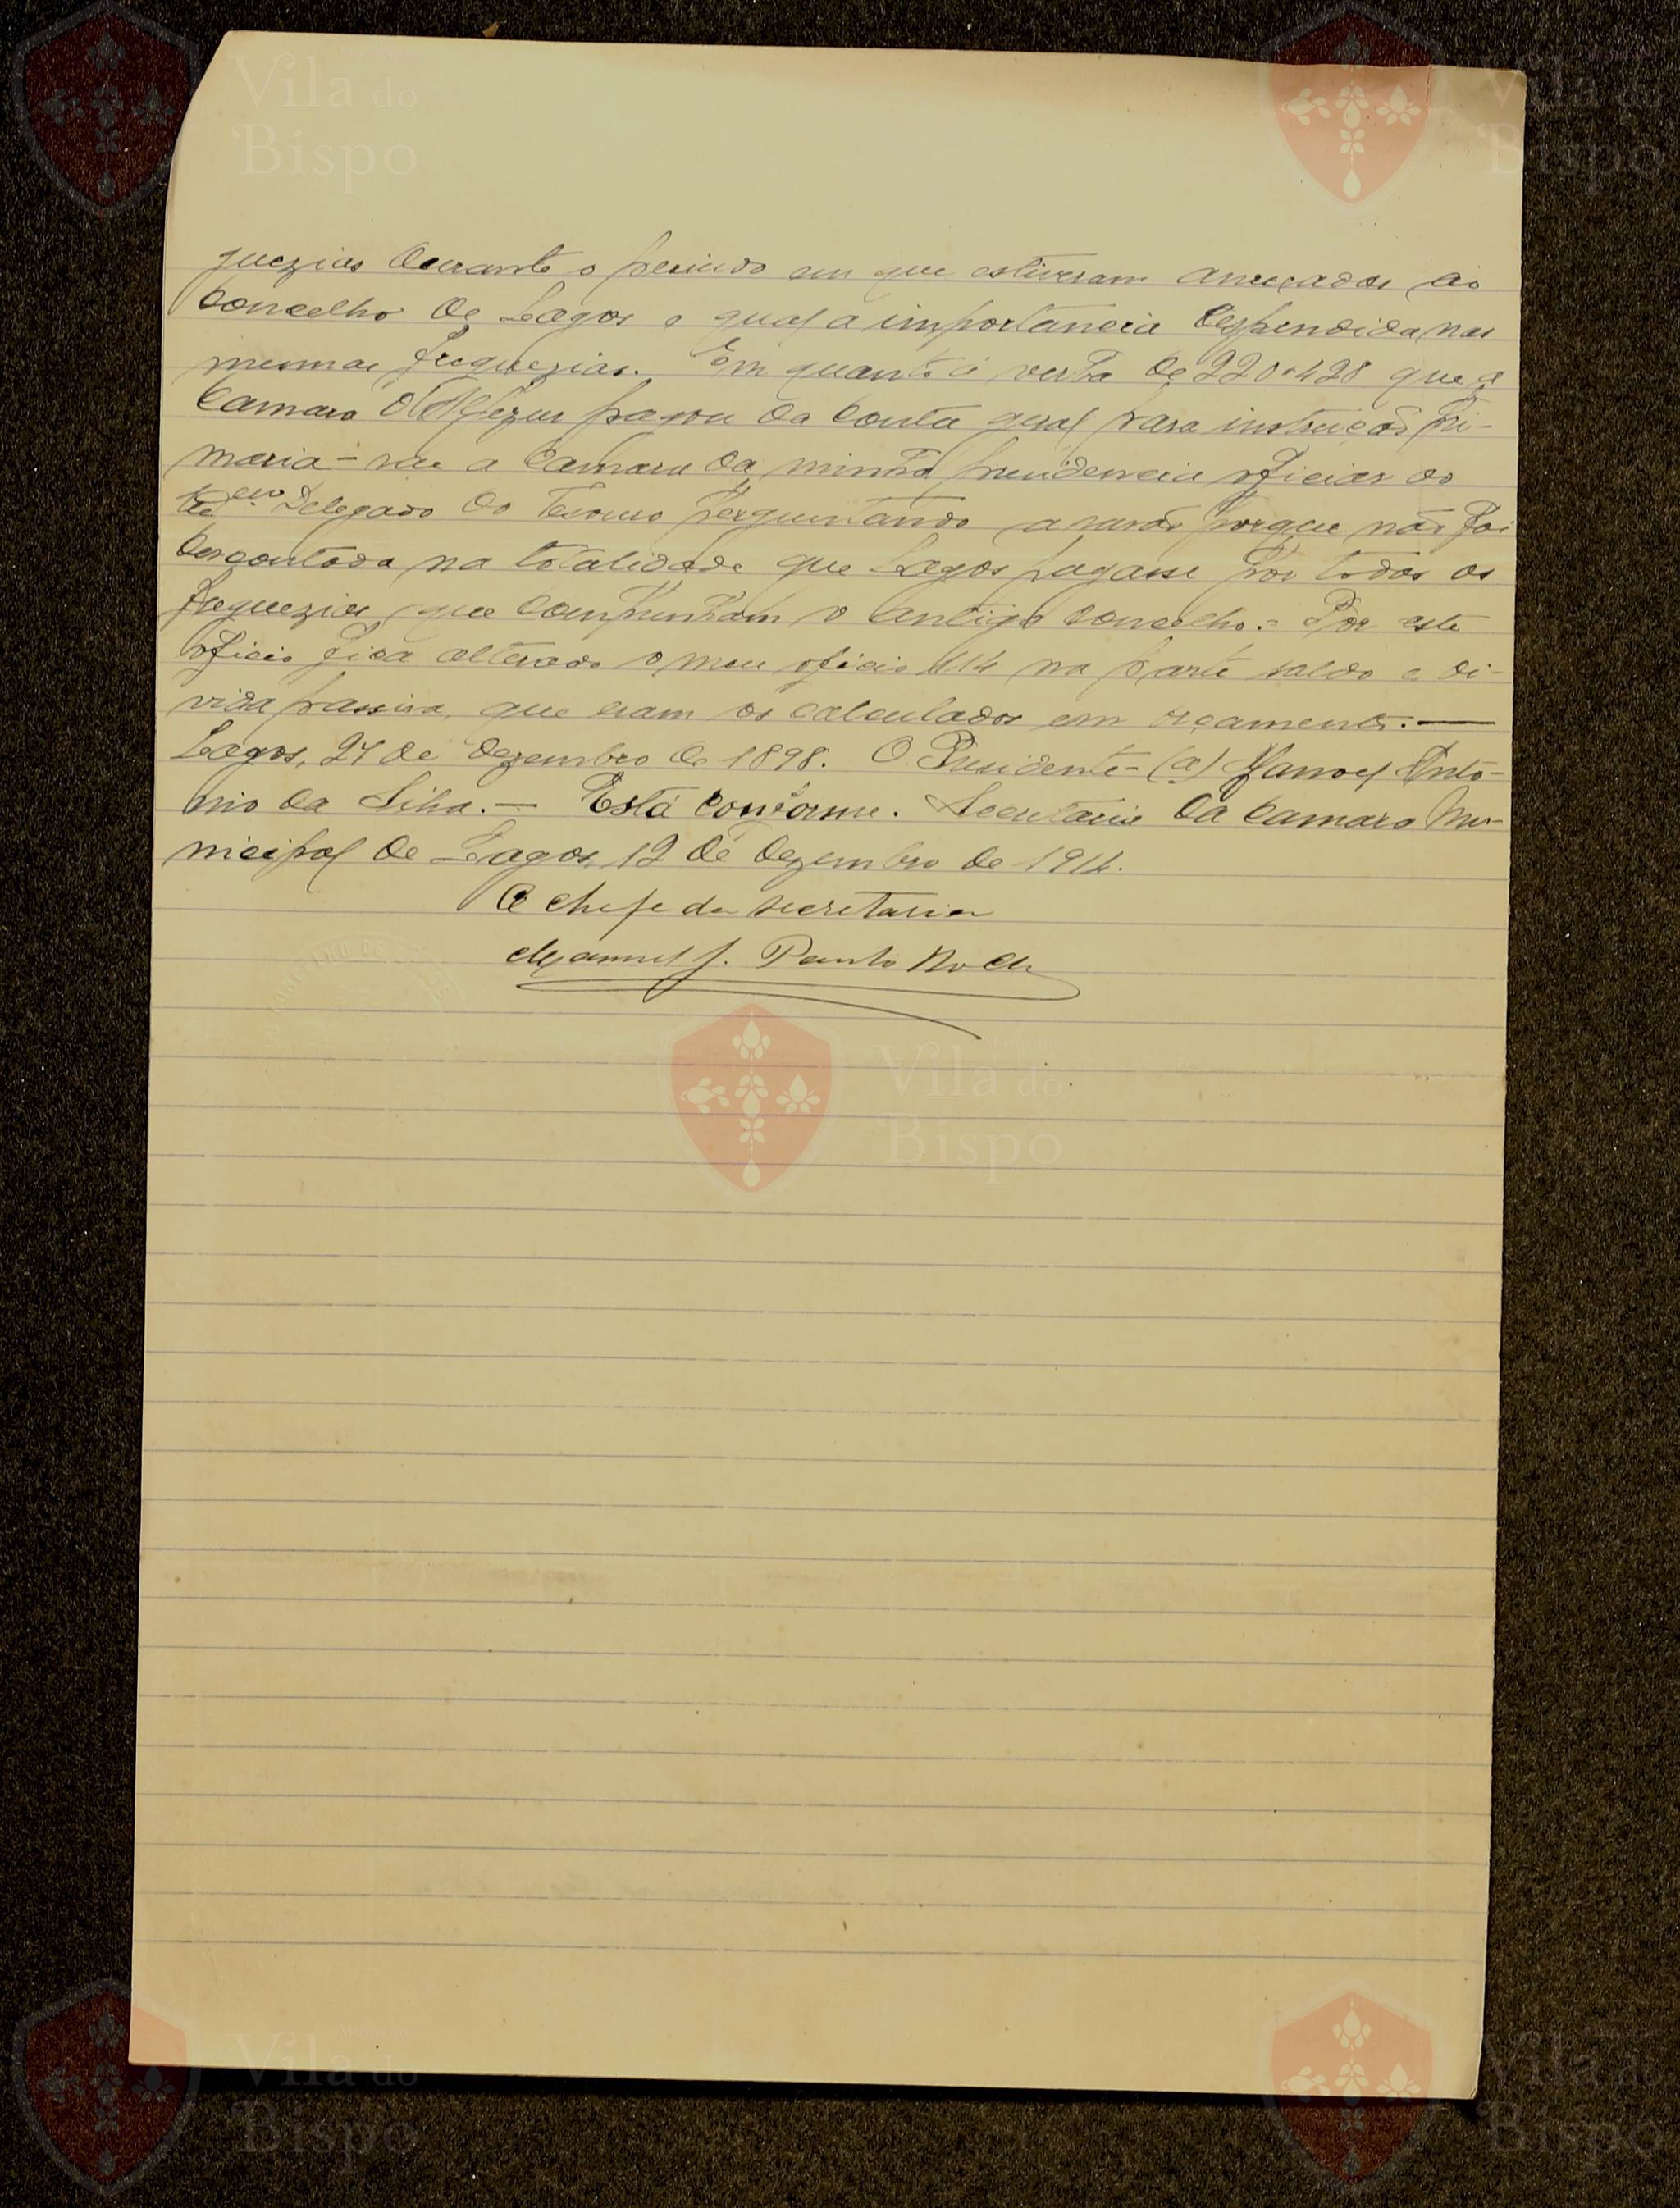 guezias durante o periodo em que estiveram anexadas ao
concelho de Lagos e qual a importancia despendida nas
mesmas freguezias. Em quanto á verba de 220$428 que a
Camara d'Aljezur pagou da conta geral para instrução pri-
maria - vae a Camara da minha presidencia oficiar ao
Delegado do Tesouro perguntando a razão porque não foi
descontada na totalidade que Lagos pagasse por todas as
freguezias que compunham o antigo concelho. = Por este
oficio fica alterado o meu oficio 114 na parte saldo e di-
vida passiva, que eram os calculados em orçamento. —
Lagos, 27 de Dezembro de 1898. O Presidente - (a) Manoel Antó-
nio da Silva. — Está conforme. Secretaria da Camara Mu-
nicipal de Lagos, 12 de Dezembro de 1914.
O chefe da secretaria
Manuel J. Paulo
Vila do
Bispo
Vila do
Bispo
Vila do
Bispo
Vila do
Bispo
Vila do
Bispo